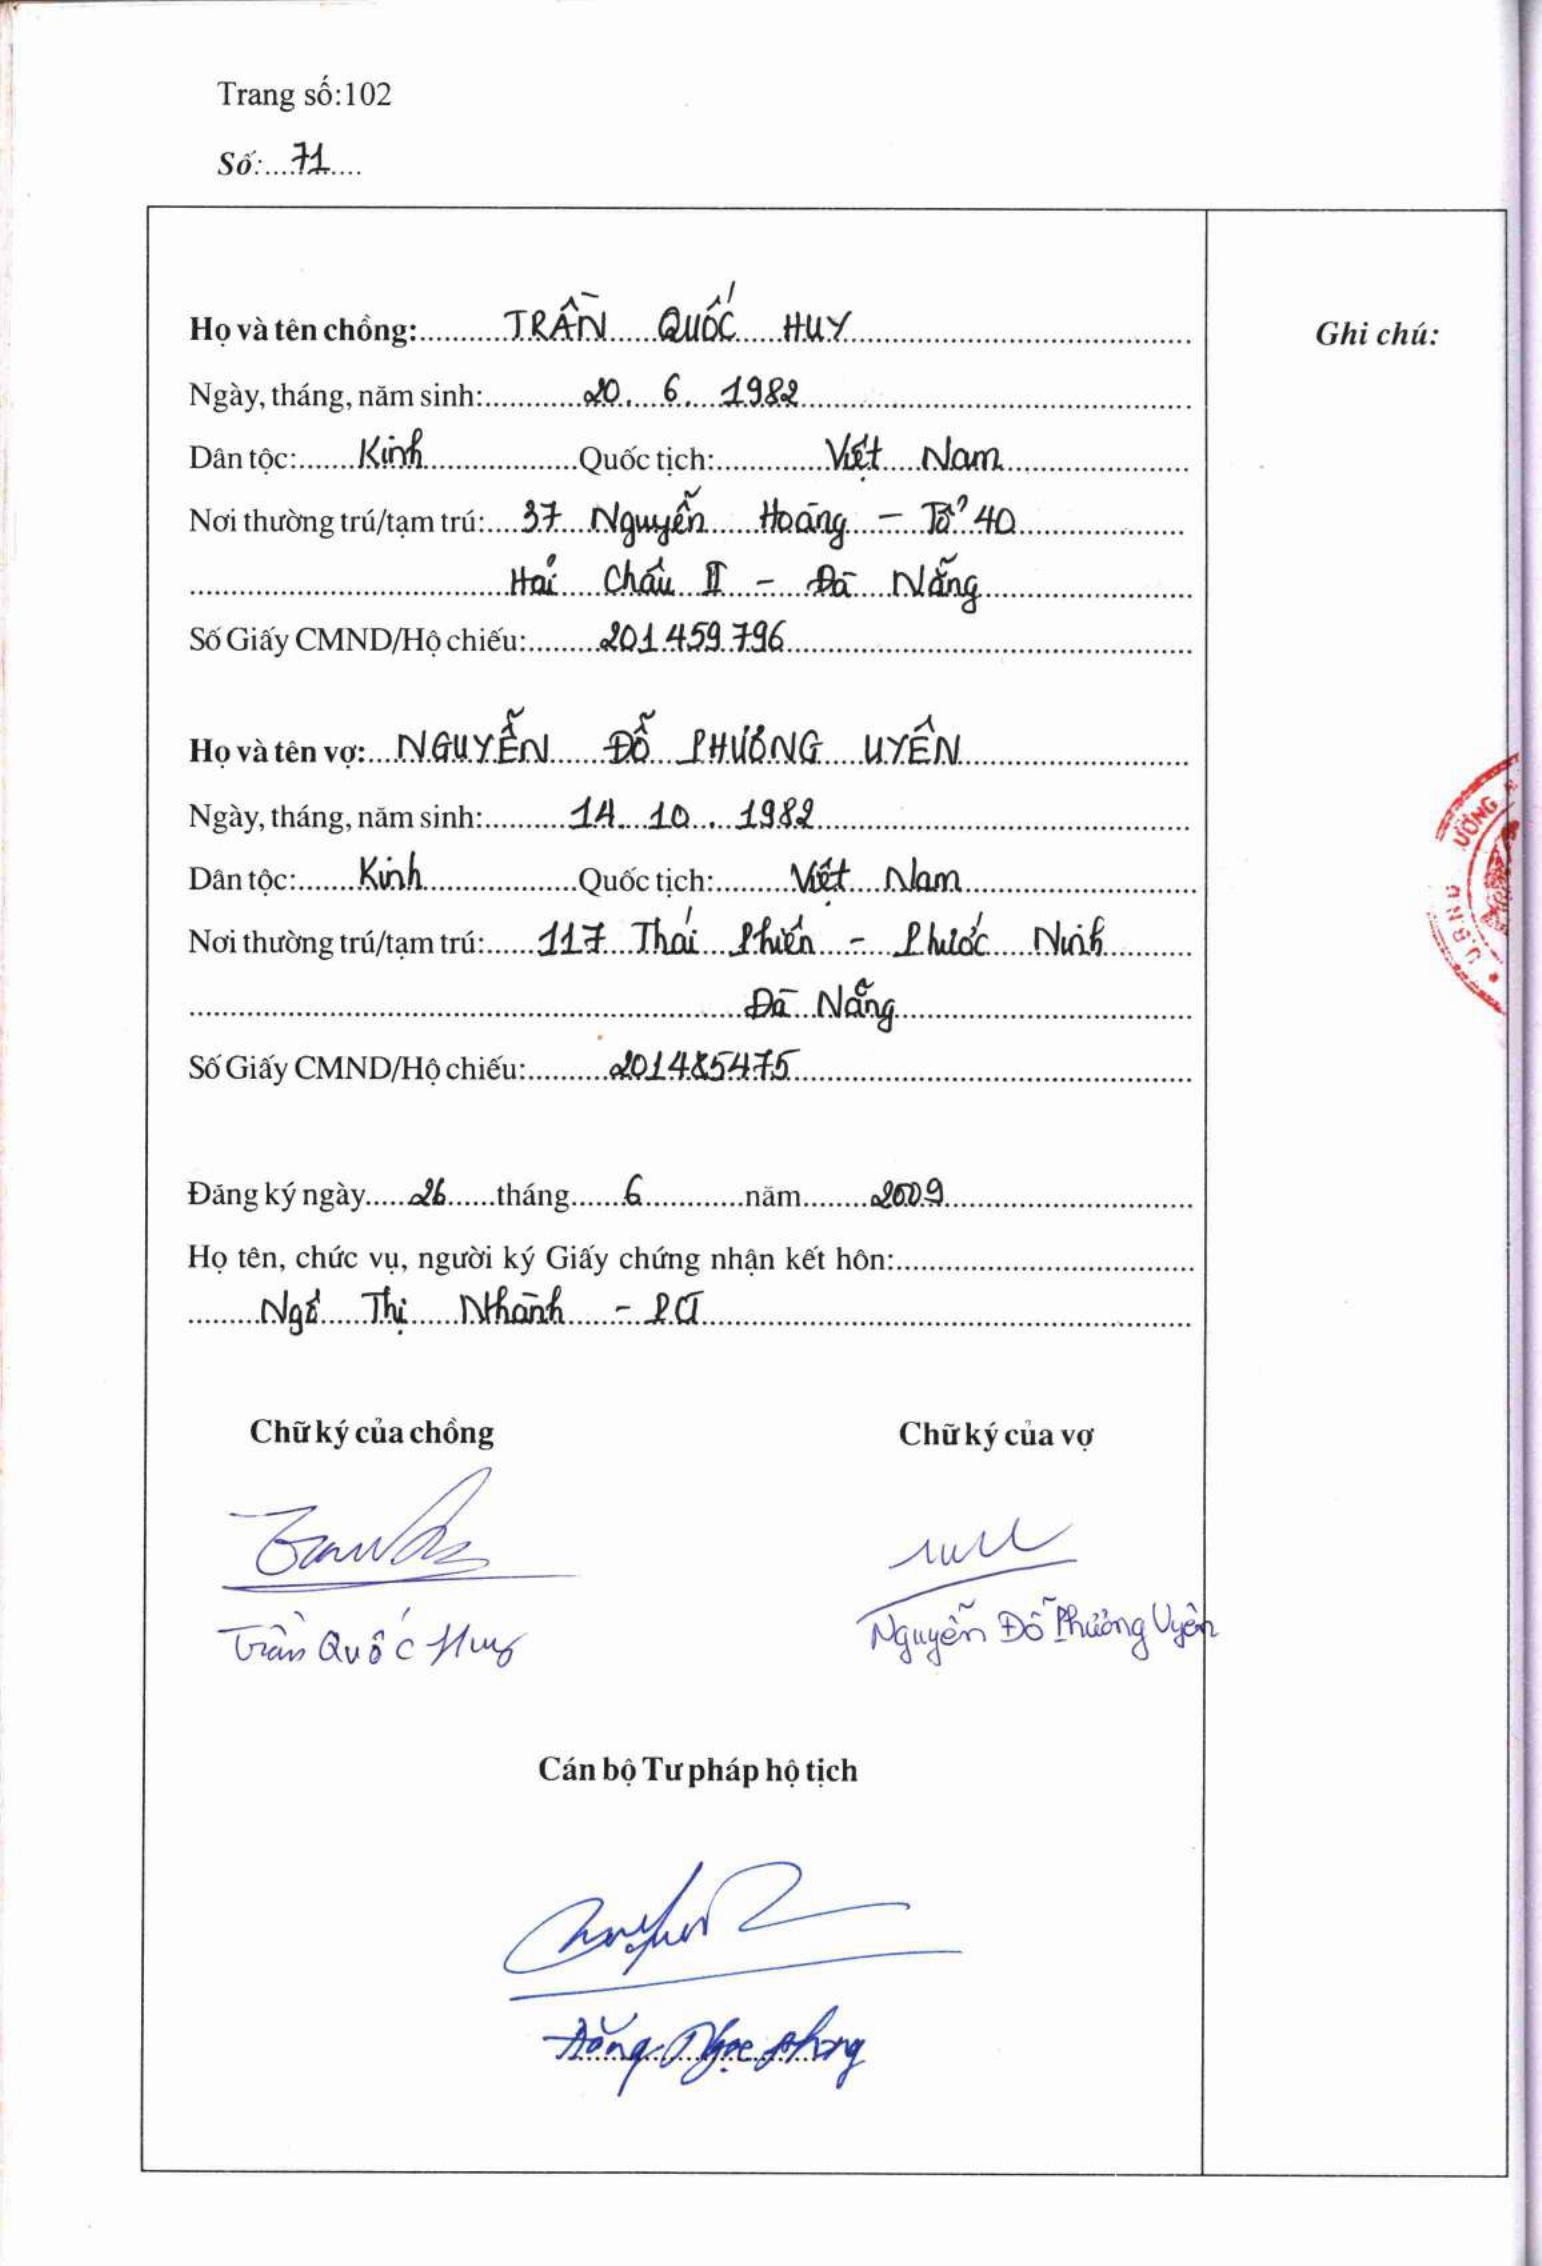 Trang số:102
Số: 71
Họ và tên chồng: TRẦN QUỐC HUY
Ghi chú:
Ngày, tháng, năm sinh: 20. 6. 1982
Dân tộc: Kinh Quốc tịch: Việt Nam
Nơi thường trú/tạm trú: 37 Nguyễn Hoàng - Tổ 40
Hải Châu II - Đà Nẵng
Số Giấy CMND/Hộ chiếu: 201459796
Họ và tên vợ: NGUYỄN ĐỖ PHƯƠNG UYÊN
Ngày, tháng, năm sinh: 14. 10. 1982
Dân tộc: Kinh Quốc tịch: Việt Nam
Nơi thường trú/tạm trú: 117 Thái Phiên - Phước Ninh
Đà Nẵng
Số Giấy CMND/Hộ chiếu: 201485475
Đăng ký ngày 26 tháng 6 năm 2009
Họ tên, chức vụ, người ký Giấy chứng nhận kết hôn:
Ngô Thị Nhành - PCT
Chữ ký của chồng Chữ ký của vợ
Trần Quốc Huy Nguyễn Đỗ Phương Uyên
Cán bộ Tư pháp hộ tịch
U.B.N.D